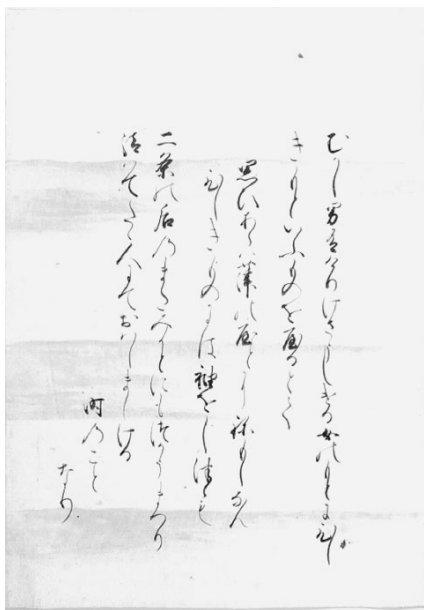 むかし男有けりけさうしける女のもとにひし
きもといふものをやるとて
思ひあらは葎のやとにねもしなん
ひしきものには袖をしつゝも
二条の后のまたみかとにもつかうまつり
給はてたゝ人にておはしましける
時のこと
なり